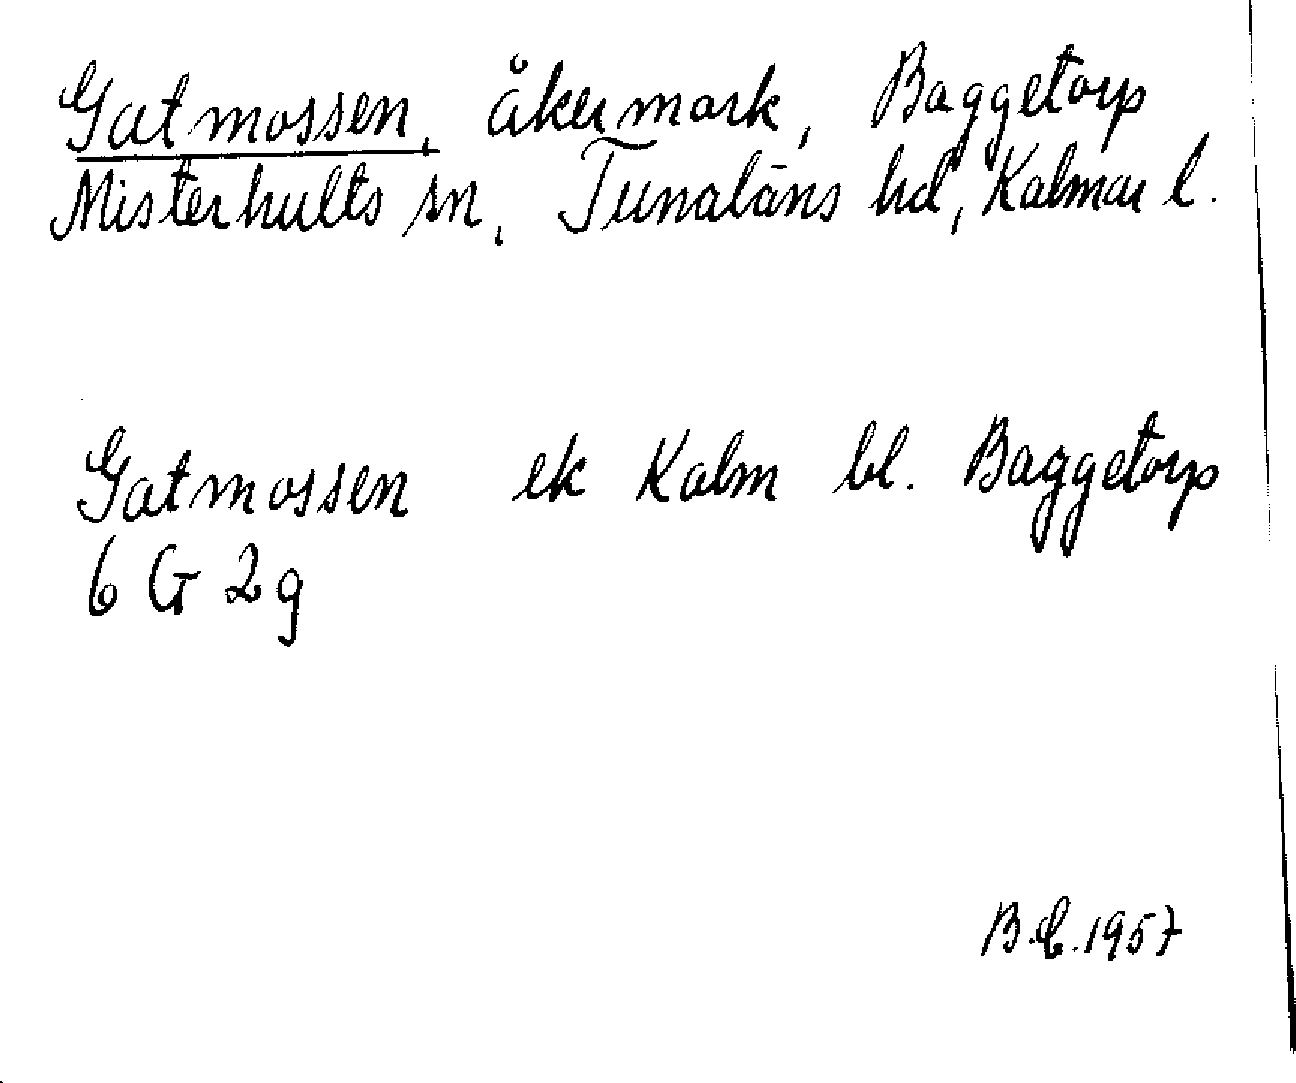 Gatmossen, åkermark, Baggetorp
Misterhults sn, Tunaläns hd, Kalmar l.
Gatmossen ek Kalm bl. Baggetorp
6 G 2g
B.C. 1957